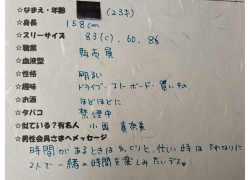 ☆なまえ・年齢 (23才)
☆身長 158cm
☆スリーサイズ 83(C). 60. 86
☆職業 販売員
☆血液型
☆性格 明るい
☆趣味 ドライブ・スノーボード・買いもの
☆お酒 ほどほどに
☆タバコ 禁煙中
☆似ている?有名人 小西真奈美
☆男性会員さまへメッセージ
時間があるときはゆっくりと、忙しい時はそれなりに
2人で一緒の時間を楽しみたいデス♥